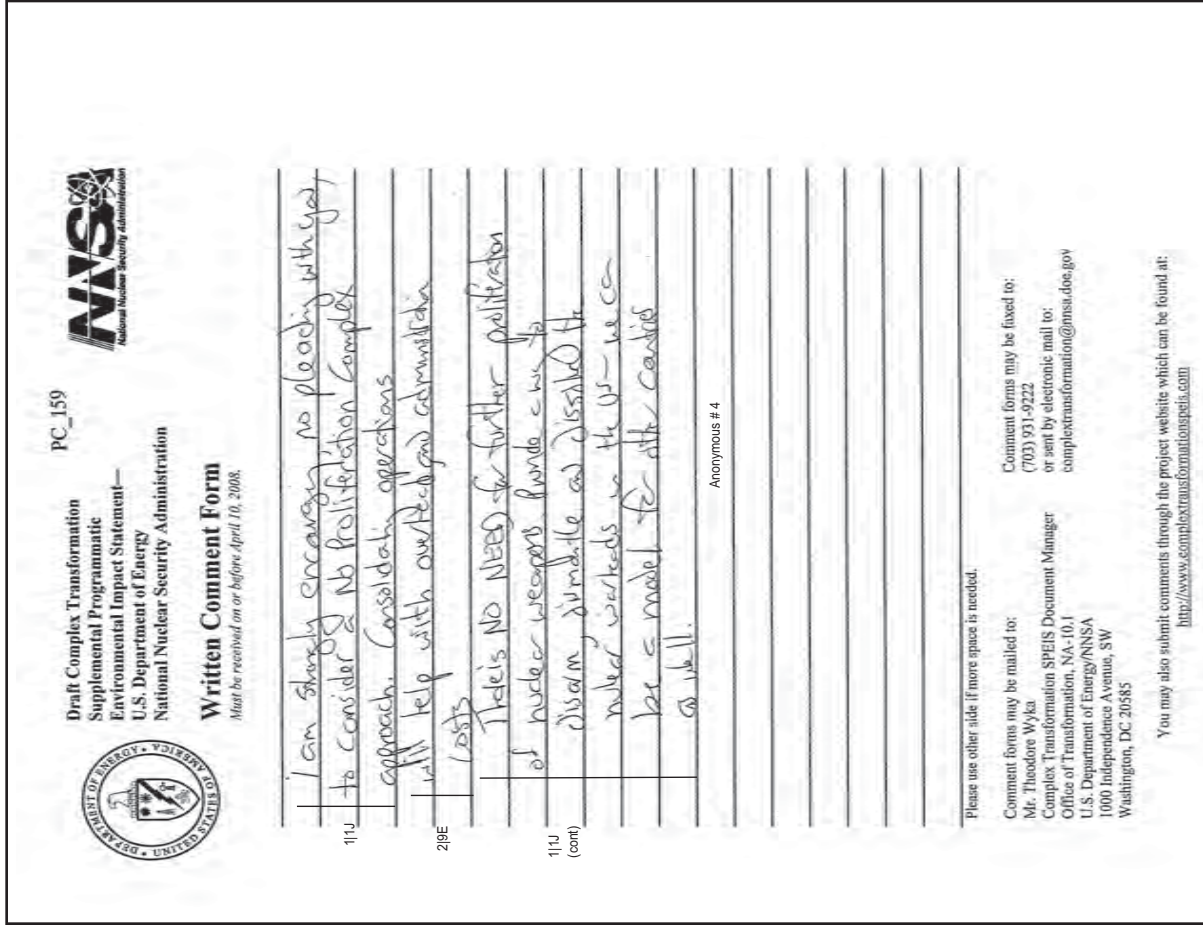 PC_159
Draft Complex Transformation
Supplemental Programmatic
Environmental Impact Statement—
U.S. Department of Energy
National Nuclear Security Administration
DEPARTMENT OF ENERGY
UNITED STATES OF AMERICA
NNSA
National Nuclear Security Administration
Written Comment Form
Must be received on or before April 10, 2008.
I am strongly encouraging, no pleading with you,
to consider a No Proliferation Complex
approach. Consolidating operations
will help with overhead and
costs
There is NO NEED for further proliferation
of nuclear weapons
disarm, dismantle and the
nuclear warheads in the US - we can
be a model for other
as well.
1|1J
2|9E
1|1J
(cont)
Anonymous # 4
Please use other side if more space is needed.
Comment forms may be mailed to:
Mr. Theodore Wyka
Complex Transformation SPEIS Document Manager
Office of Transformation, NA-10.1
U.S. Department of Energy/NNSA
1000 Independence Avenue, SW
Washington, DC 20585
Comment forms may be faxed to:
(703) 931-9222
or sent by electronic mail to:
complextransformation@nnsa.doe.gov
You may also submit comments through the project website which can be found at:
http://www.complextransformationspeis.com